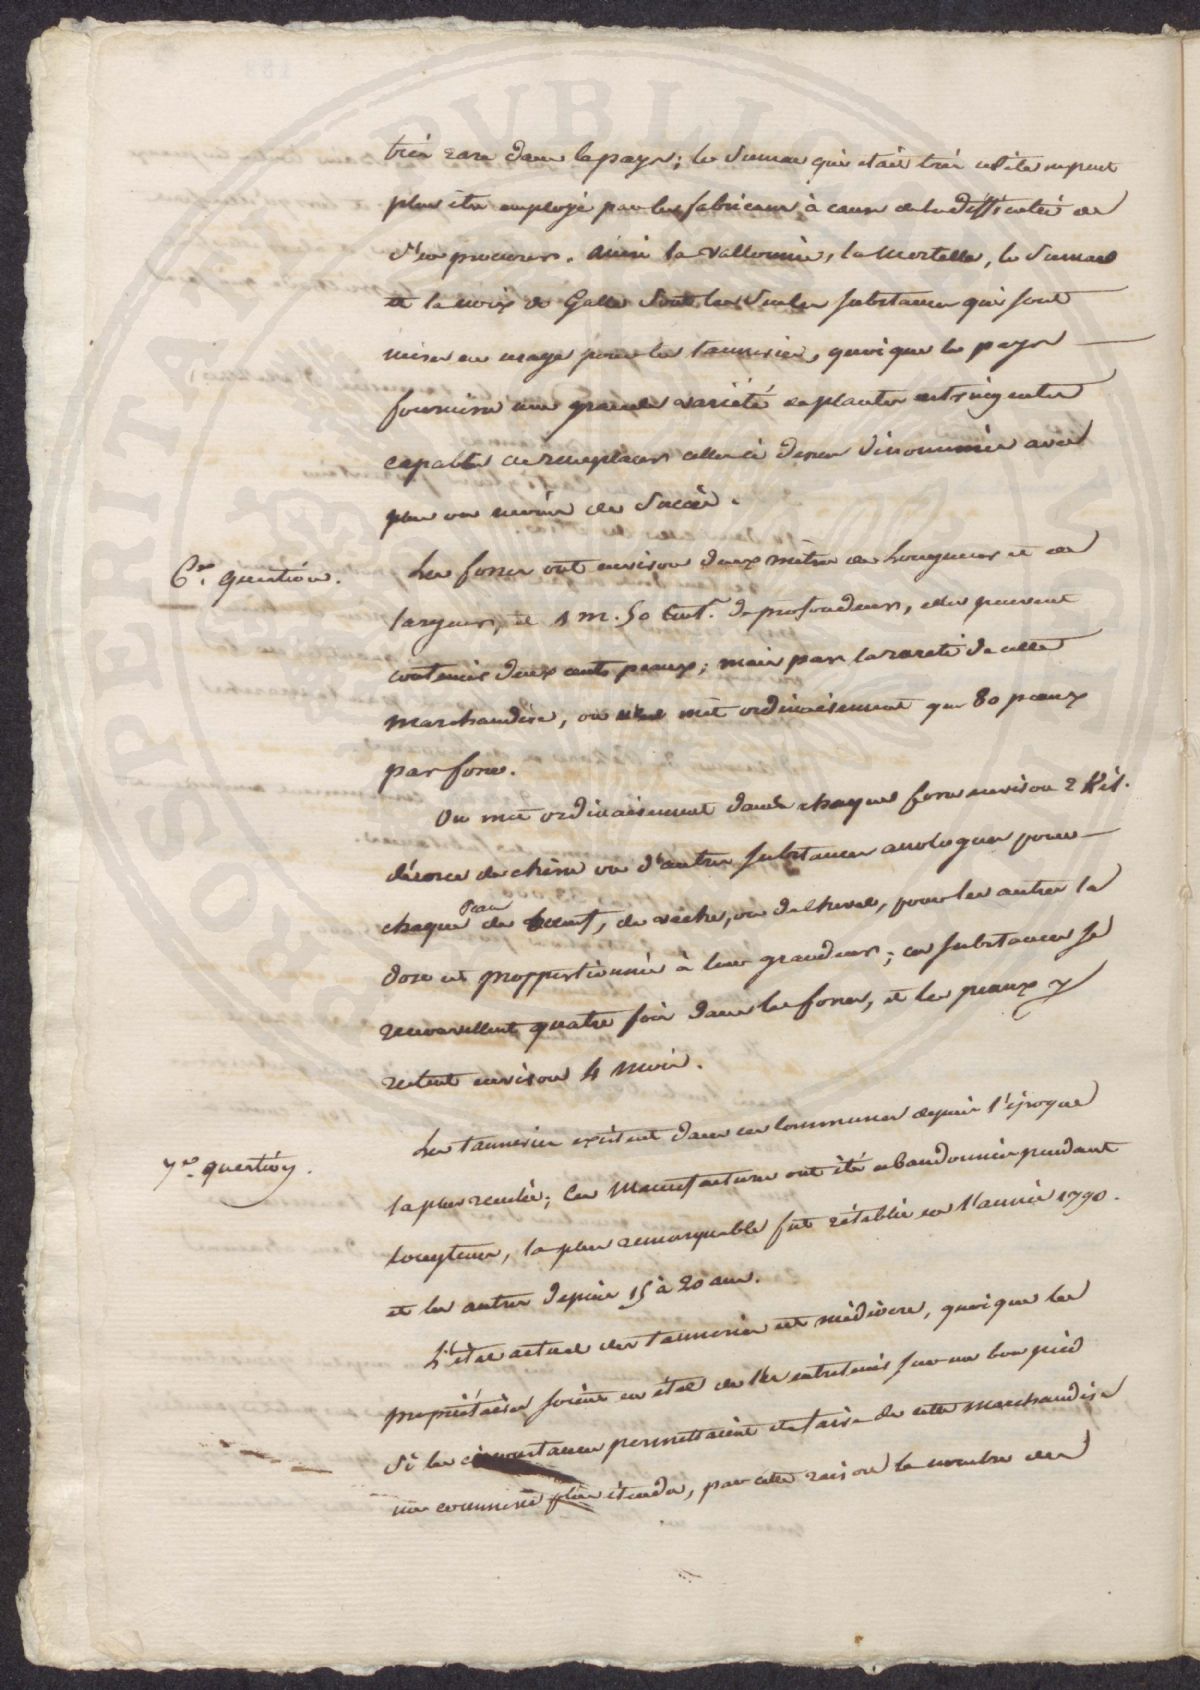 très rare dans le pays; le Sumac qui était très utile ne peut
plus être employé par les fabricans à cause de la difficulté de
s'en procurer. Ainsi la Vallonnée, la Mortelle, le Sumac
et la noix de Galle sont les seules substances qui sont
mises en usage pour les tanneries, quoique le pays
fournisse une grande variété de plantes astringentes
capables de remplacer celles ci dessus dénommées avec
plus ou moins de succès.
6e. question.
Les fosses ont environ deux mètres de longueur et de
largeur, et 1 m. 50 Cent. de profondeur, elles peuvent
contenir deux cents peaux; mais par la rareté de cette
marchandise, on ne met ordinairement que 80 peaux
par fosse.
On met ordinairement dans chaque fosse environ 2 Kil.
d'écorce de chêne ou d'autres substances analogues pour
chaque peau de boeuf, de vache, ou de cheval, pour les autres la
dose est proppertionnée à leur grandeur; ces substances se
renouvellent quatre fois dans les fosses, et les peaux y
restent environ 4 mois.
7e. question.
Les tanneries existent dans ces communes depuis l'époque
la plus reculée; Ces manufactures ont été abandonnées pendant
longtems, la plus remarquable fut rétablie en l'année 1790.
et les autres depuis 15 à 20 ans.
L'état actuel des tanneries est médiocre, quoique les
propriétaires soient en état de les entretenir sur un bon pied
si les circonstances permettaient de faire de cette marchandise
un commerce plus étendu, par cette raison le nombre des